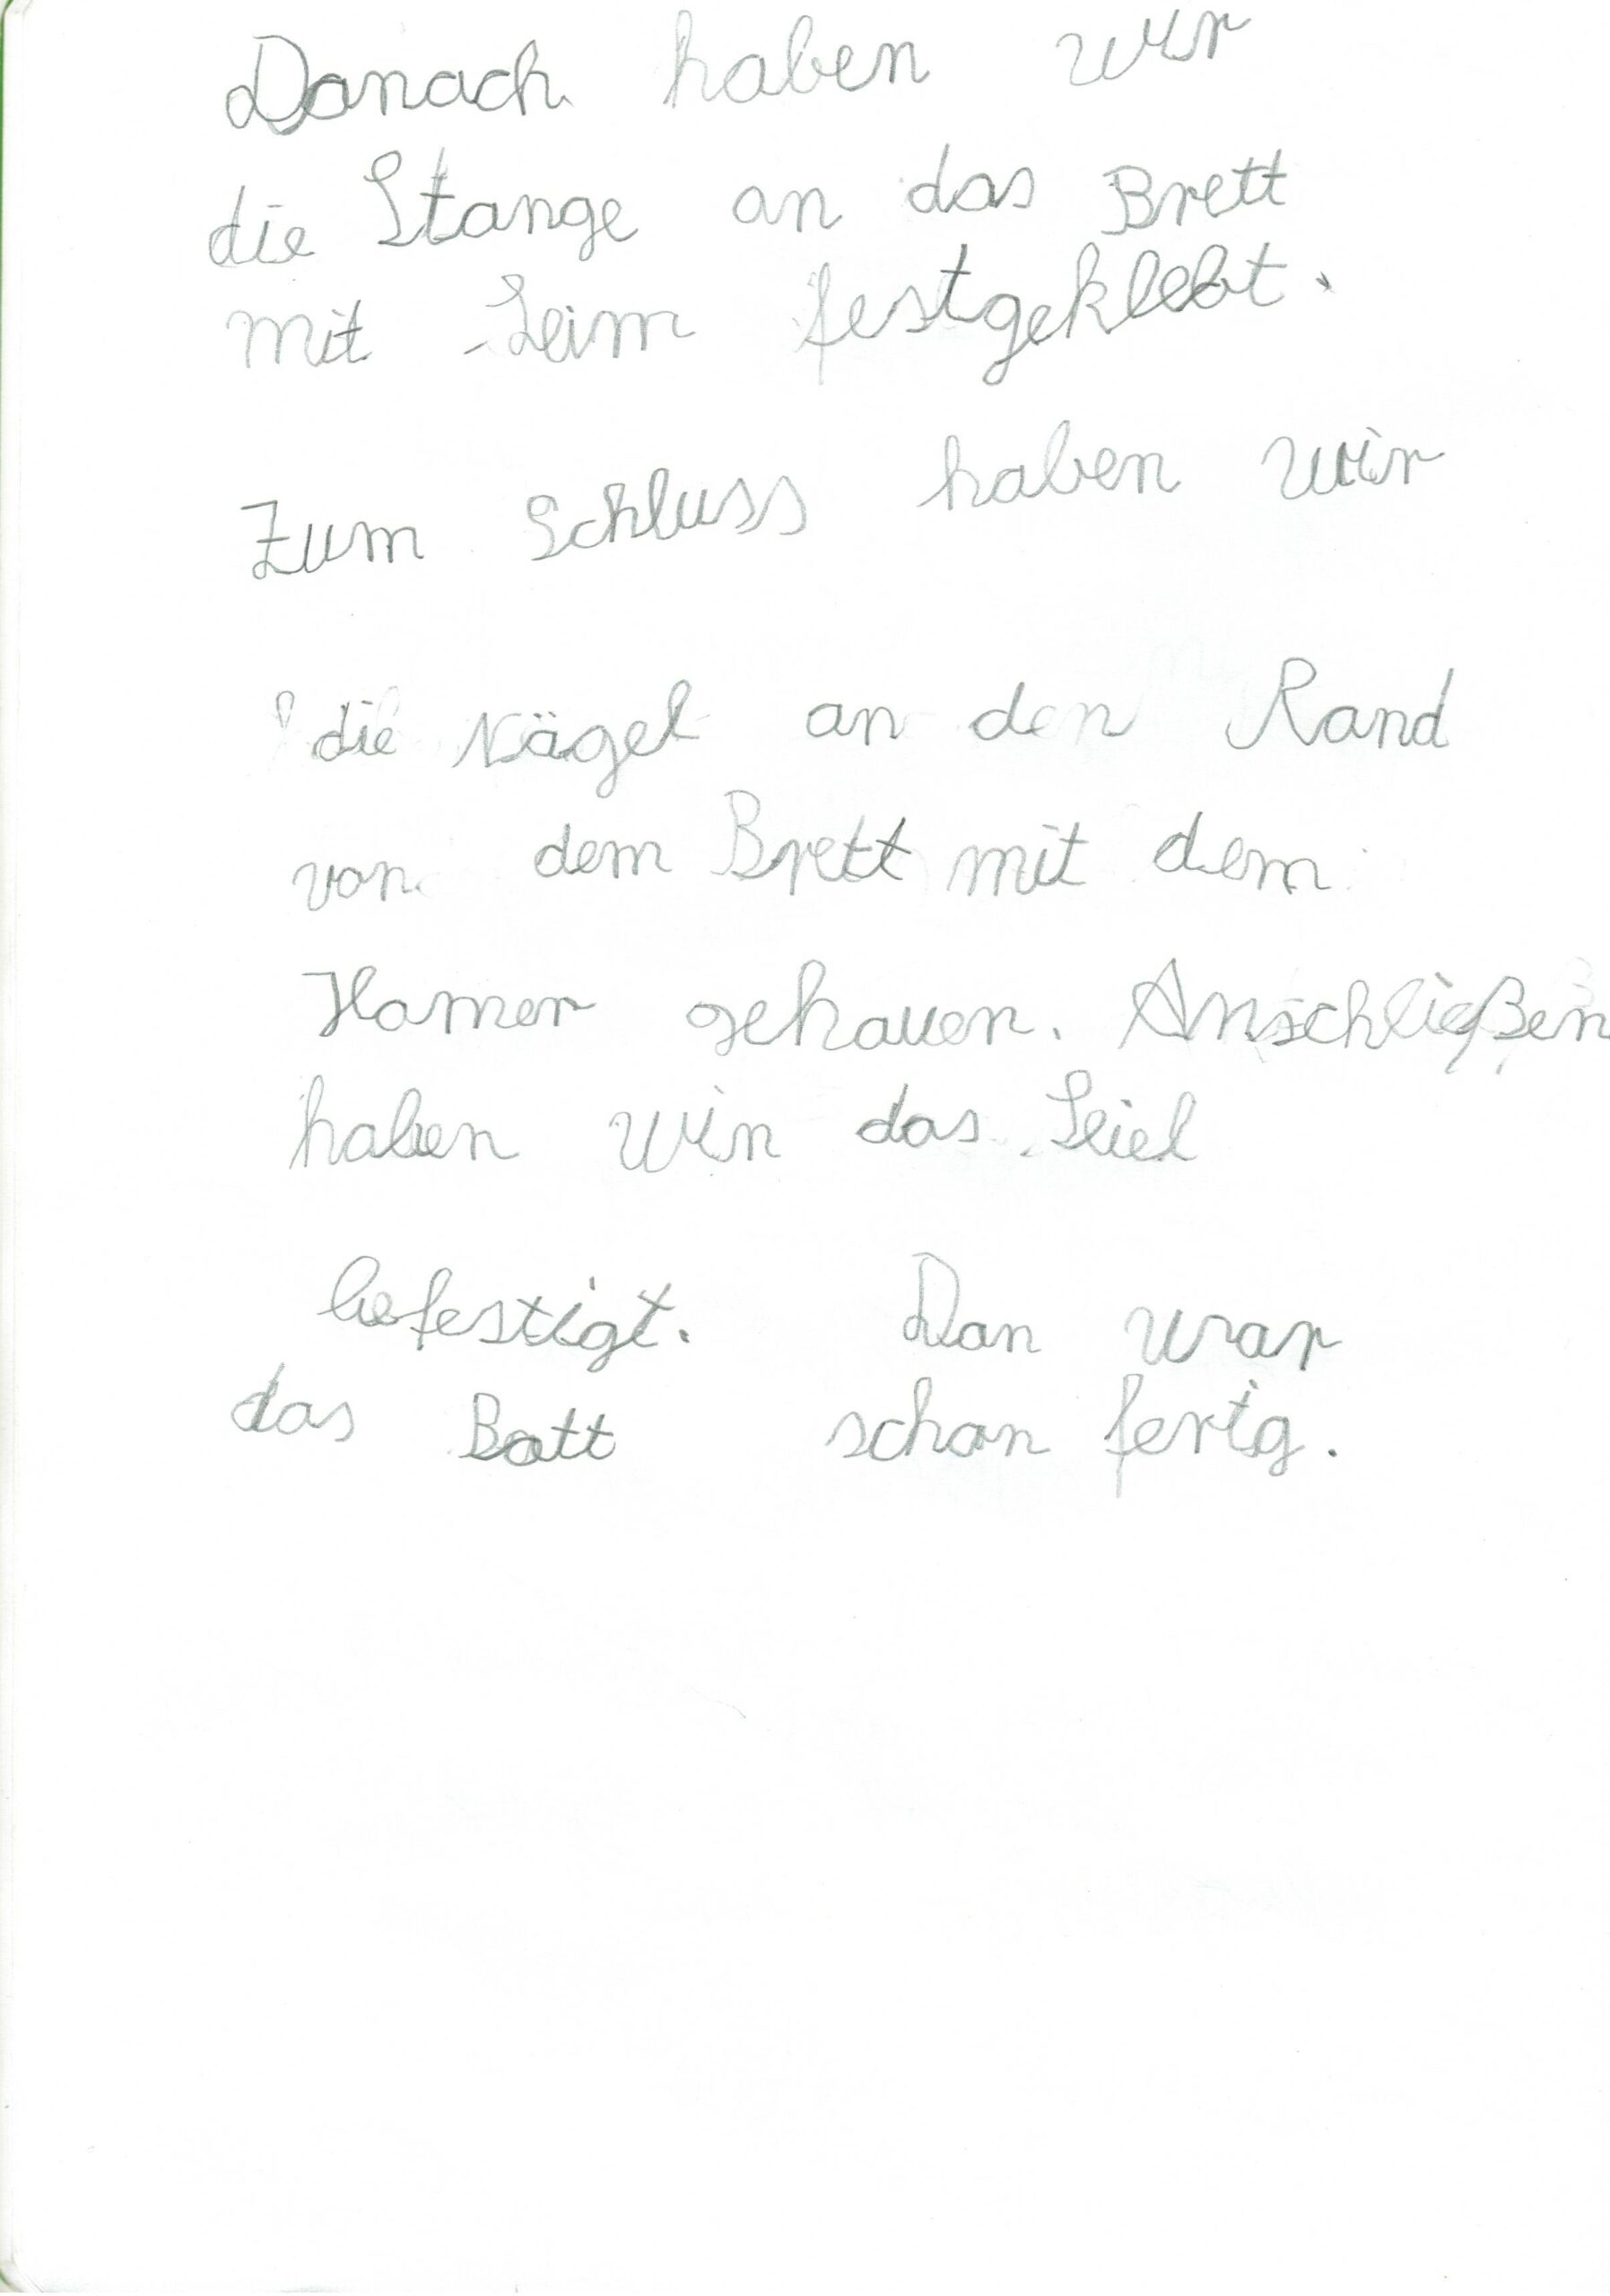 Danach haben wir
die Stange an das Brett
mit Leim festgeklebt.
Zum Schluss haben wir
die Nägel an den Rand
von dem Brett mit dem
Hamer gehauen. Anschließen
haben wir das Seiel
befestigt. Dan war
das Bott schon fertg.